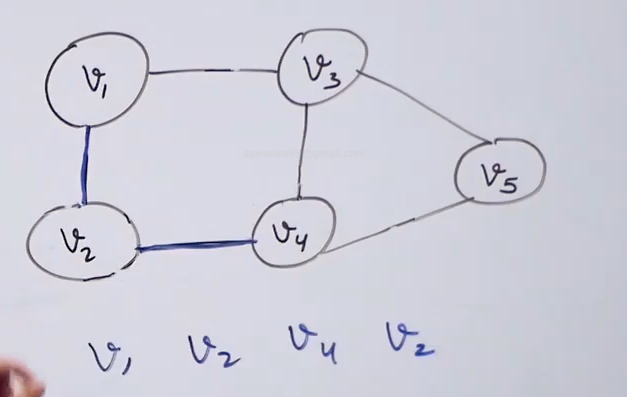 V₁ V₃
V₅
V₂ V₄
V₁ V₂ V₄ V₂